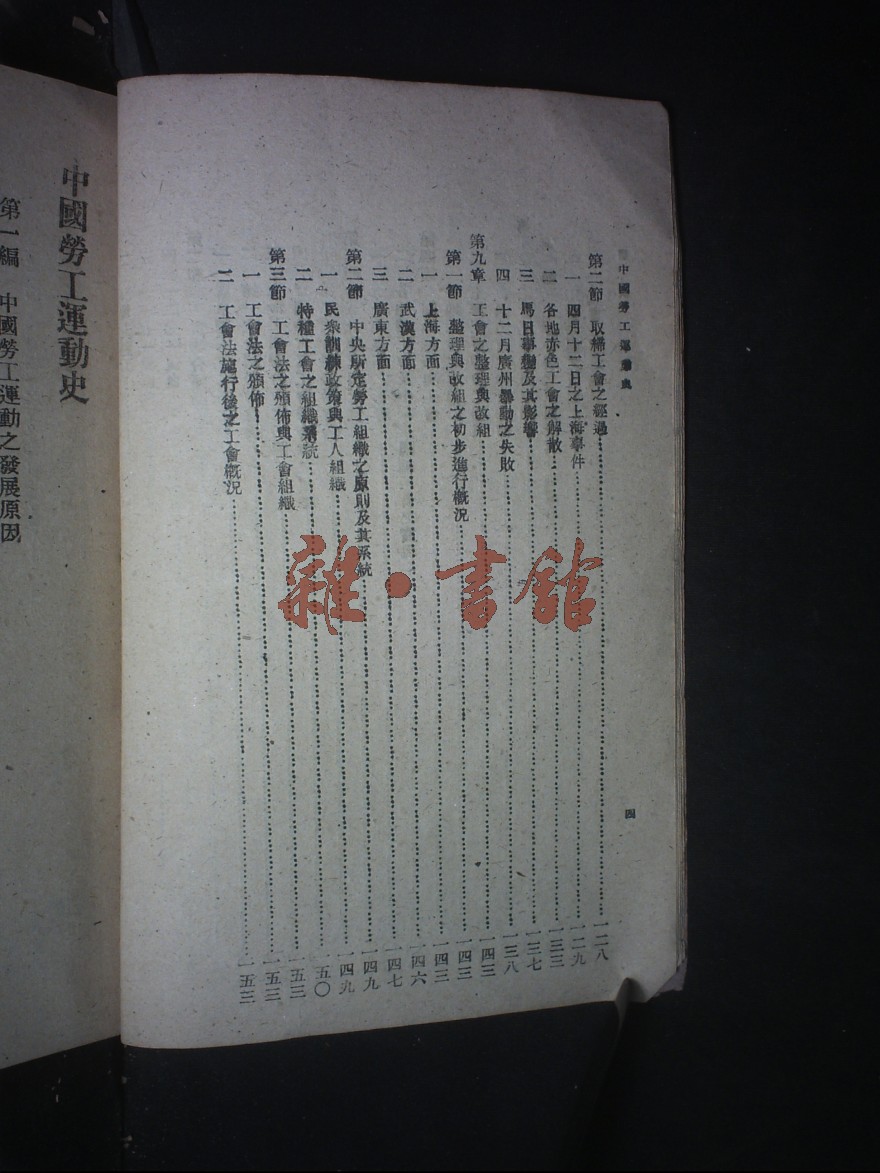 中國勞工運動史
四
第二節 取締工會之經過……一二八
一 四月十二日之上海事件……一二九
二 各地赤色工會之解散……一三三
三 馬日事變及其影響……一三七
四 十二月廣州暴動之失敗……一三八
第九章 工會之整理與改組……一四三
第一節 整理與改組之初步進行概況……一四三
一 上海方面……一四三
二 武漢方面……一四六
三 廣東方面……一四七
第二節 中央所定勞工組織之原則及其系統……一四九
一 民衆訓練政策與工人組織……一四九
二 特種工會之組織系統……一五〇
第三節 工會法之頒佈與工會組織……一五三
一 工會法之頒佈……一五三
二 工會法施行後之工會概況……一五三
中國勞工運動史
第一編 中國勞工運動之發展原因
雜·書館